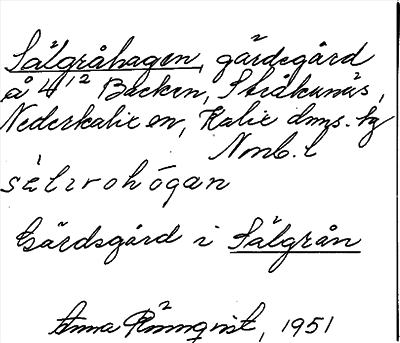 Sälgråhagen, gärdegård
å 4¹² Backen, Stråkanäs,
Nederkalix en, Kalix dms. hg
Nnb. l
Gärdsgård i Sälgrån
Anna Rönnqvist, 1951